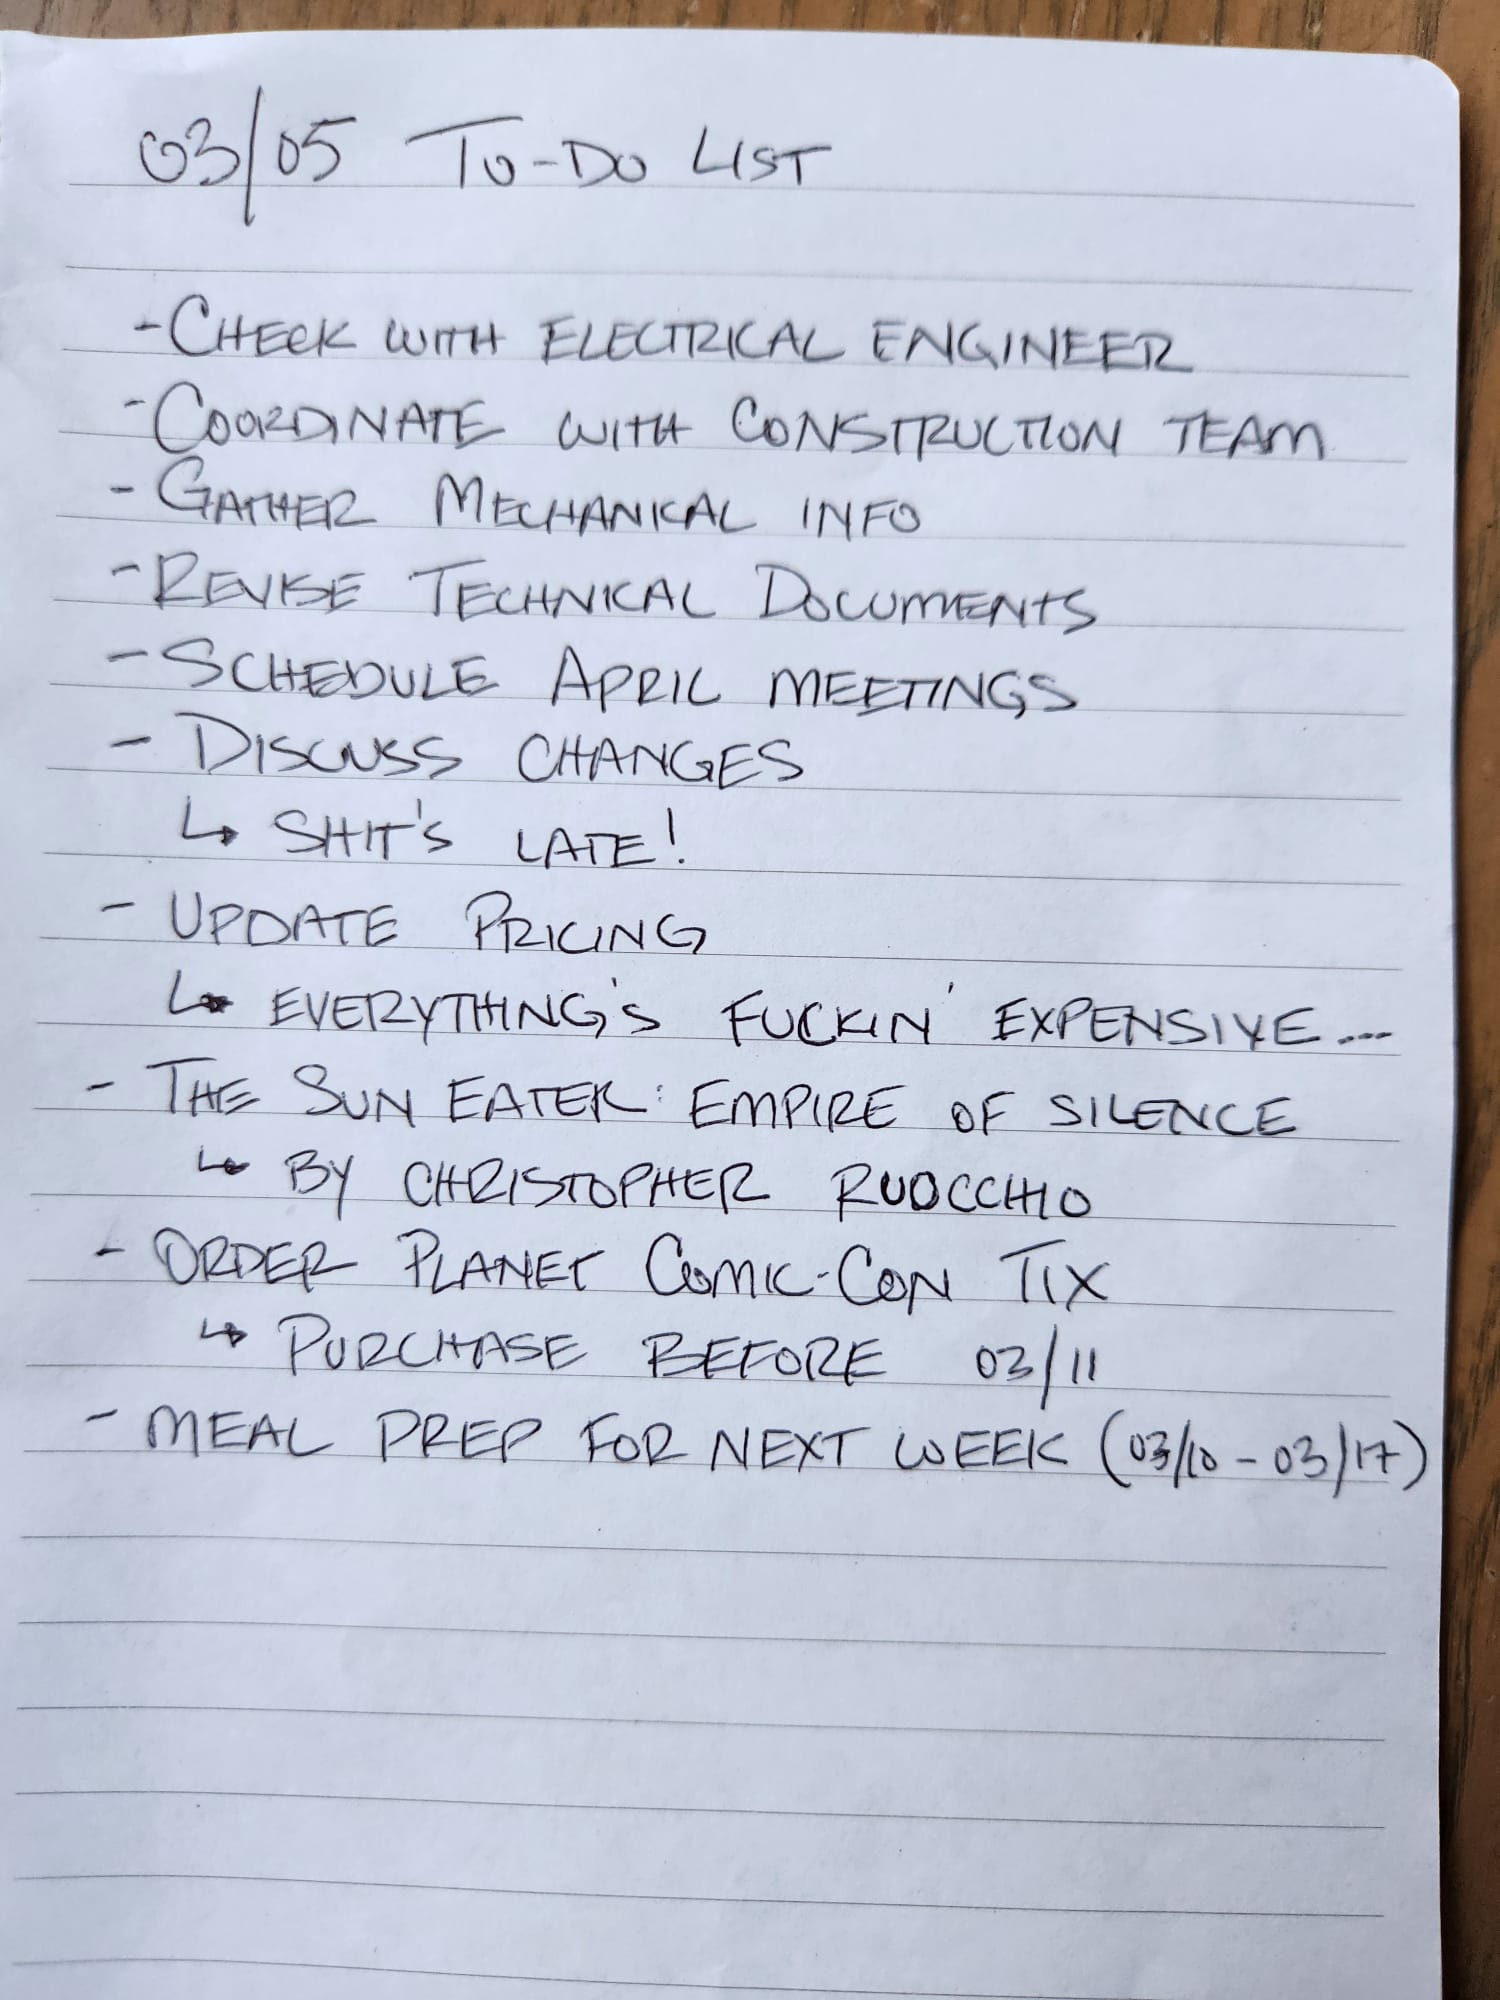 03/05 TO-DO LIST
- CHECK WITH ELECTRICAL ENGINEER
- COORDINATE WITH CONSTRUCTION TEAM
- GATHER MECHANICAL INFO
- REVISE TECHNICAL DOCUMENTS
- SCHEDULE APRIL MEETINGS
- DISCUSS CHANGES
↳ SHIT'S LATE!
- UPDATE PRICING
↳ EVERYTHING'S FUCKIN' EXPENSIVE...
- THE SUN EATER: EMPIRE OF SILENCE
↳ BY CHRISTOPHER RUOCCHIO
- ORDER PLANET COMIC-CON TIX
↳ PURCHASE BEFORE 03/11
- MEAL PREP FOR NEXT WEEK (03/10 - 03/17)